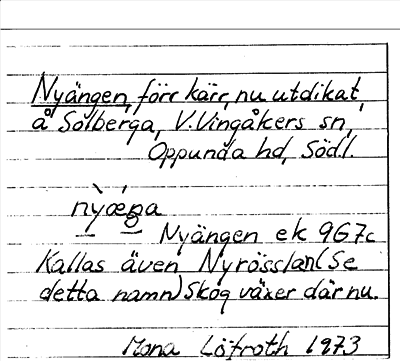 Nyängen, förr kärr, nu utdikat,
å Solberga, V. Vingåkers sn,
Oppunda hd, Södl.
Nyängen ek 9G7c
Kallas även Nyrösslan (Se
detta namn) Skog växer där nu.
Mona Löfroth 1973